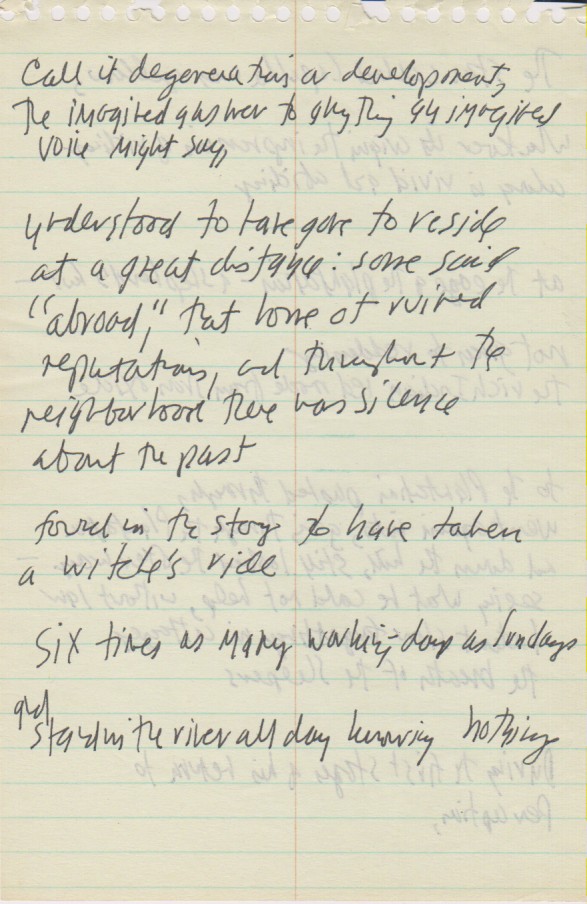 Call it degeneration or development,
the imagined answer to anything an imagined
voice might say,
understood to have gone to reside
at a great distance: some said
"abroad," that home of ruined
reputations, and throughout the
neighborhood there was silence
about the past
found in the story to have taken
a witch's ride
Six times as many working-days as Sundays
and
stand in the river all day knowing nothing